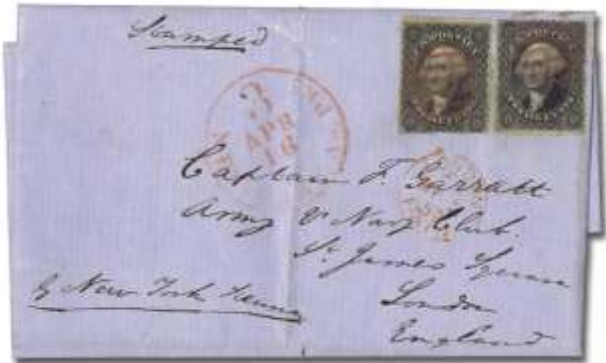 Stamped
APR
16
Captain F. Garratt
Army & Navy Club.
St James Square
London
England
By New York Steamer